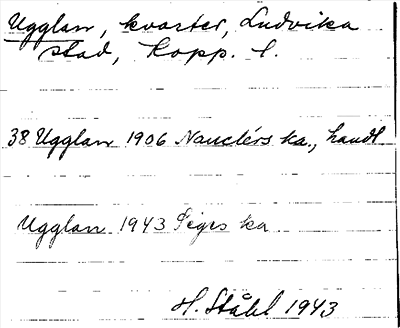 Ugglan, kvarter, Ludvika
stad, Kopp. l.
38 Ugglan 1906 Nauclérs ka., handl
Ugglan 1943 Segrs ka
H. Ståhl 1943